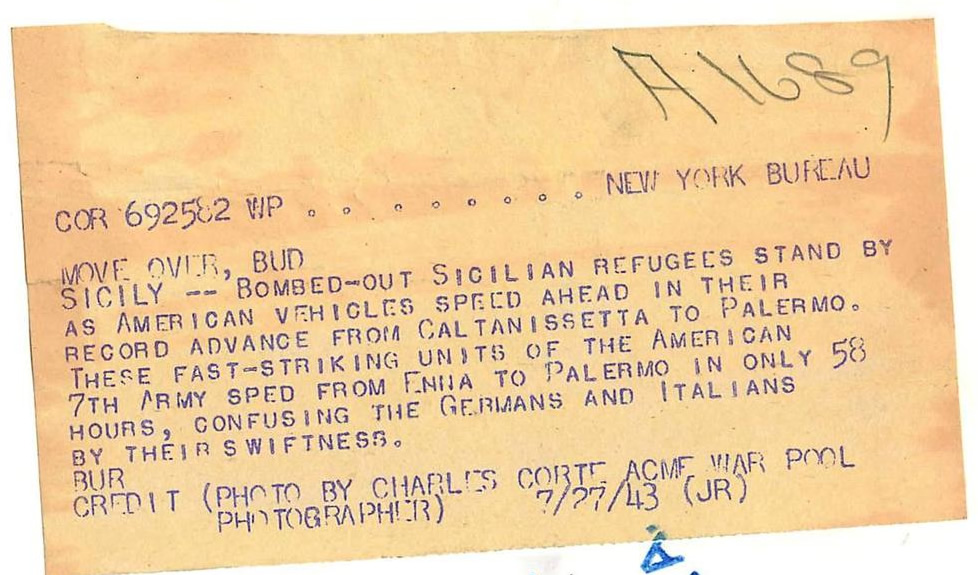 A1689
COR 692582 WP . . . . . . . . . NEW YORK BUREAU
MOVE OVER, BUD
SICILY -- BOMBED-OUT SICILIAN REFUGEES STAND BY
AS AMERICAN VEHICLES SPEED AHEAD IN THEIR
RECORD ADVANCE FROM CALTANISSETTA TO PALERMO.
THESE FAST-STRIKING UNITS OF THE AMERICAN
7TH ARMY SPED FROM ENNA TO PALERMO IN ONLY 58
HOURS, CONFUSING THE GERMANS AND ITALIANS
BY THEIR SWIFTNESS.
BUR
CREDIT (PHOTO BY CHARLES CORTE ACME WAR POOL
PHOTOGRAPHER) 7/27/43 (JR)